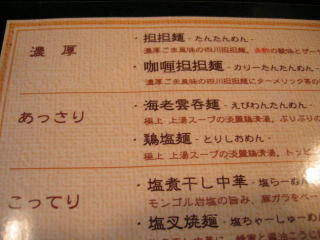 濃厚
・担担麺 - たんたんめん -
濃厚ごま風味の四川担担麺。
・咖喱担担麺 - カリーたんたんめん -
濃厚ごま風味の四川担担麺にターメリック等の
あっさり
・海老雲呑麺 - えびわんたんめん -
極上 上湯スープの淡麗越清湯。ぷりぷりの
・鶏塩麺 - とりしおめん -
極上 上湯スープの淡麗越清湯。トッピ
こってり
・塩煮干し中華 - 塩らーめん
モンゴル岩塩の旨み、豚ガラをベー
・塩叉焼麺 - 塩ちゃーしゅーめ